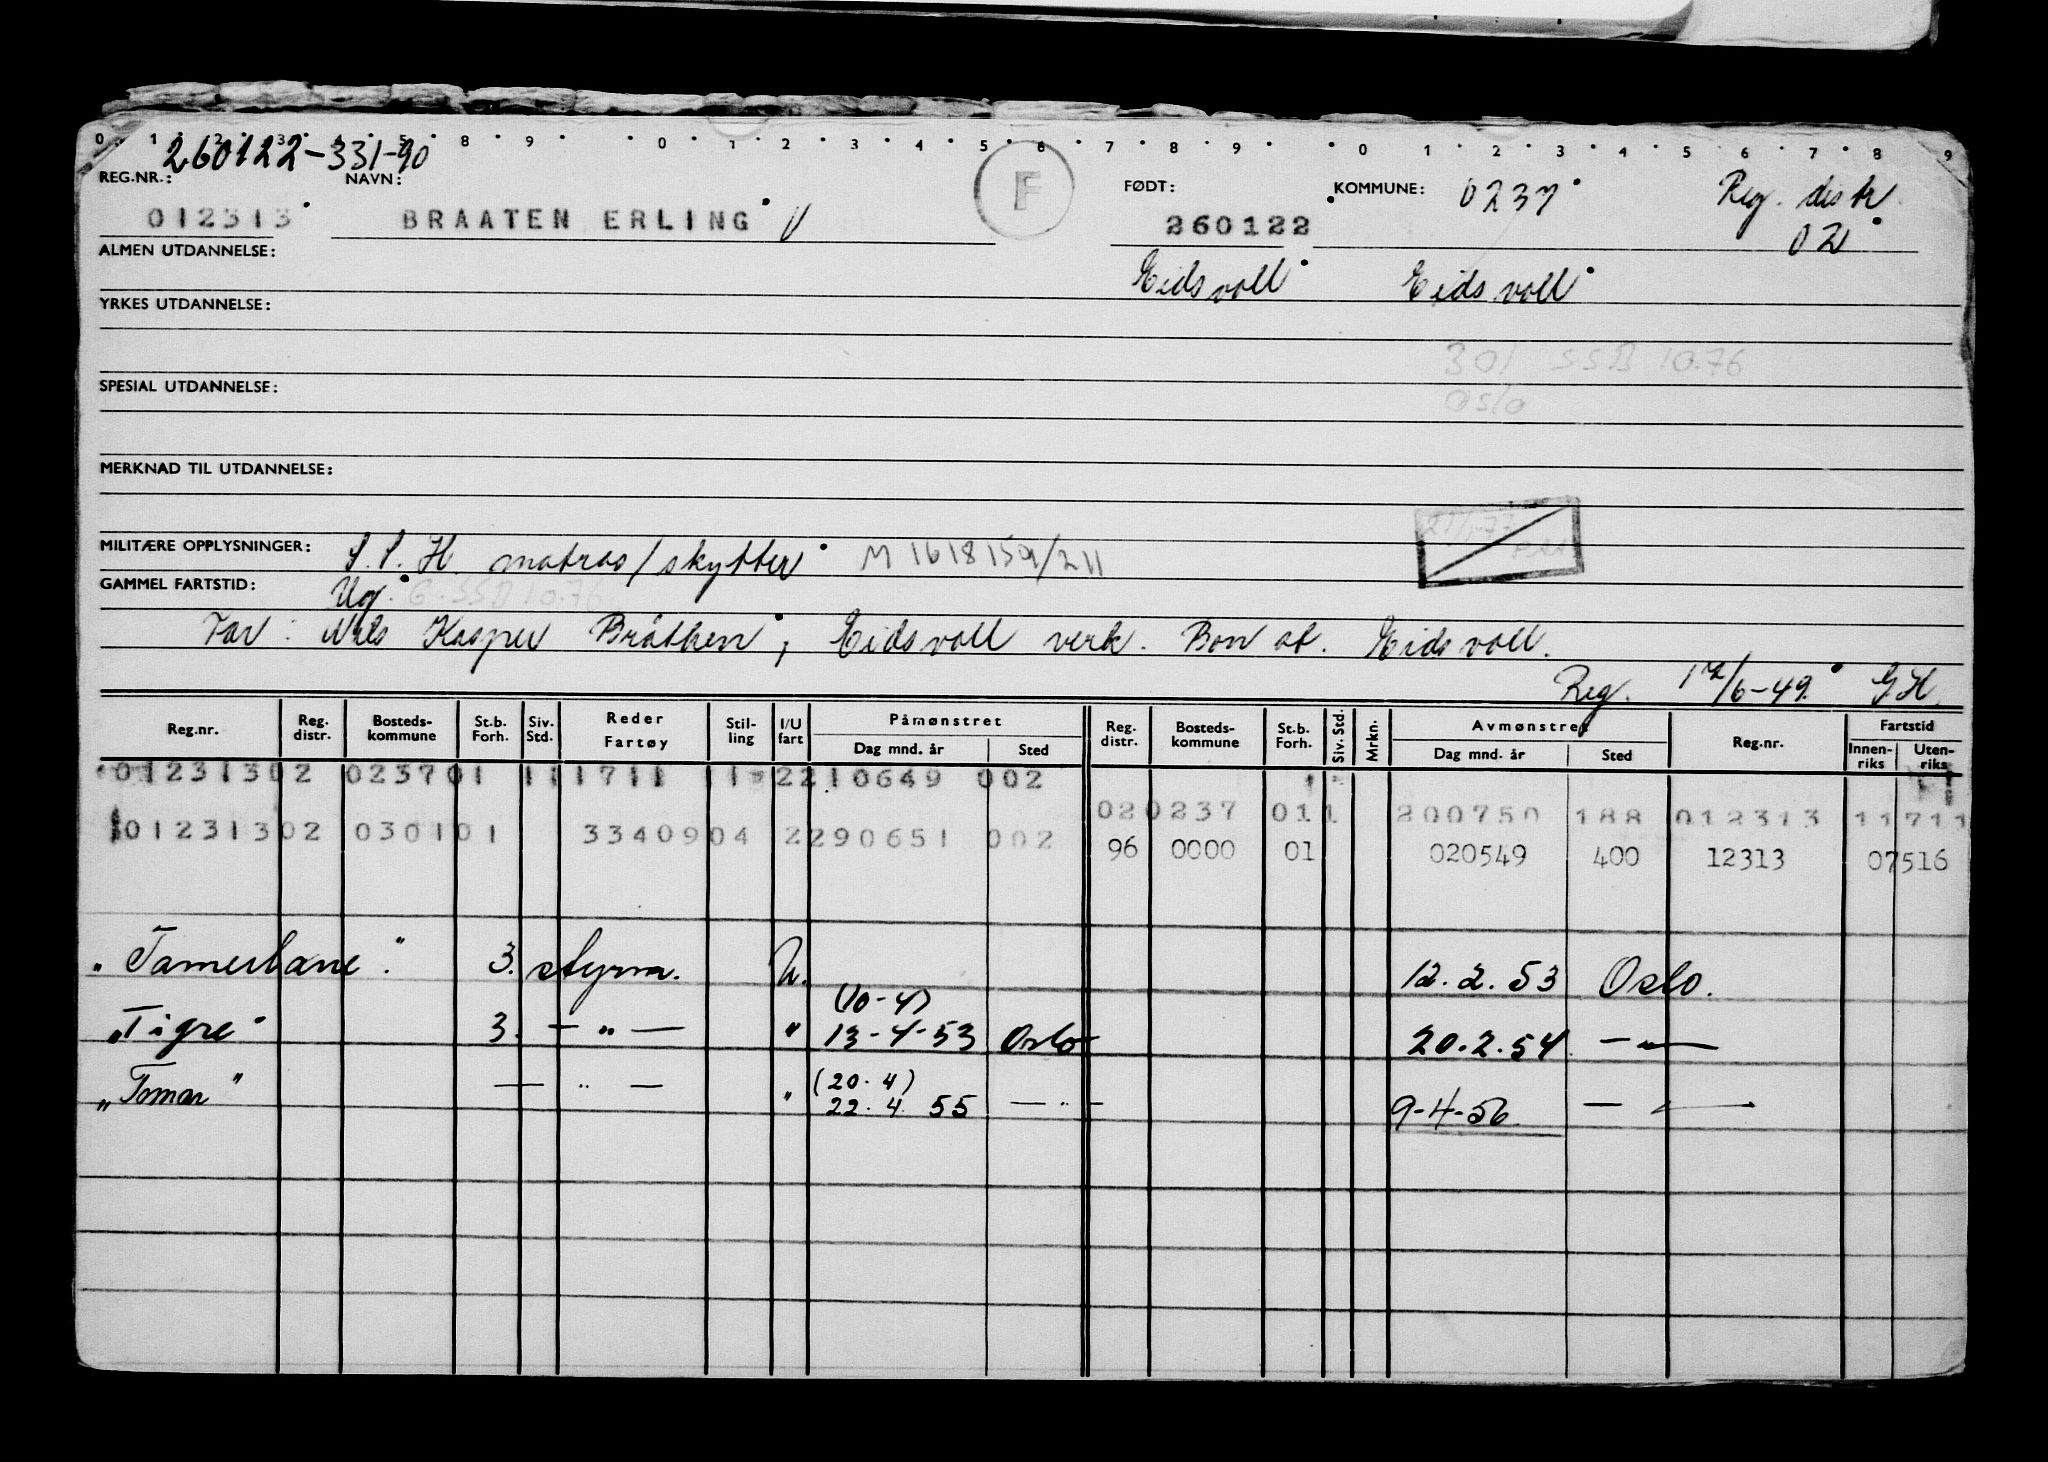 0 1 2 3 4 5 8 9 0 1 2 3 4 5 6 7 8 9 0 1 2 3 4 5 6 7 8 9
260122-331-90
REG.NR.: NAVN: F FØDT: KOMMUNE: 0237 Reg. distr.
012313 BRAATEN ERLING 260122 02
ALMEN UTDANNELSE: Eidsvoll Eidsvoll
YRKES UTDANNELSE:
301 SSB 10.76
Oslo
SPESIAL UTDANNELSE:
MERKNAD TIL UTDANNELSE:
MILITÆRE OPPLYSNINGER: S.S.H. matros/skytter M 1618159/211
GAMMEL FARTSTID: Ug. G. SSB 10.76
Far: Nils Kasper Bråthen; Eidsvoll verk. Bon st. Eidsvoll.
Reg. 17/6-49. GH
Reg.nr. Reg. distr. Bosteds-kommune St.b. Forh. Siv. Std. Reder Fartøy Stil-ling I/U fart Påmønstret Dag mnd. år Sted Reg. distr. Bosteds-kommune St.b. Forh. Siv. Std. Mrkn. Avmønstret Dag mnd. år Sted Reg.nr. Fartstid Innen-riks Uten-riks
012313 02 0237 01 1 11711 11 2 210649 002
02 0237 01 1 200750 188 012313 11711
012313 02 0301 01 33409 04 2 290651 002
96 0000 01 020549 400 12313 07516
"Tamerlane" 3. styrm. U. 12.2.53 Oslo.
(10-4)
"Tigre" 3. — " — " 13-4-53 Oslo 20.2.54 — " —
(20.4)
"Tomar" — " — " 22.4.55 — " — 9-4-56. — " —